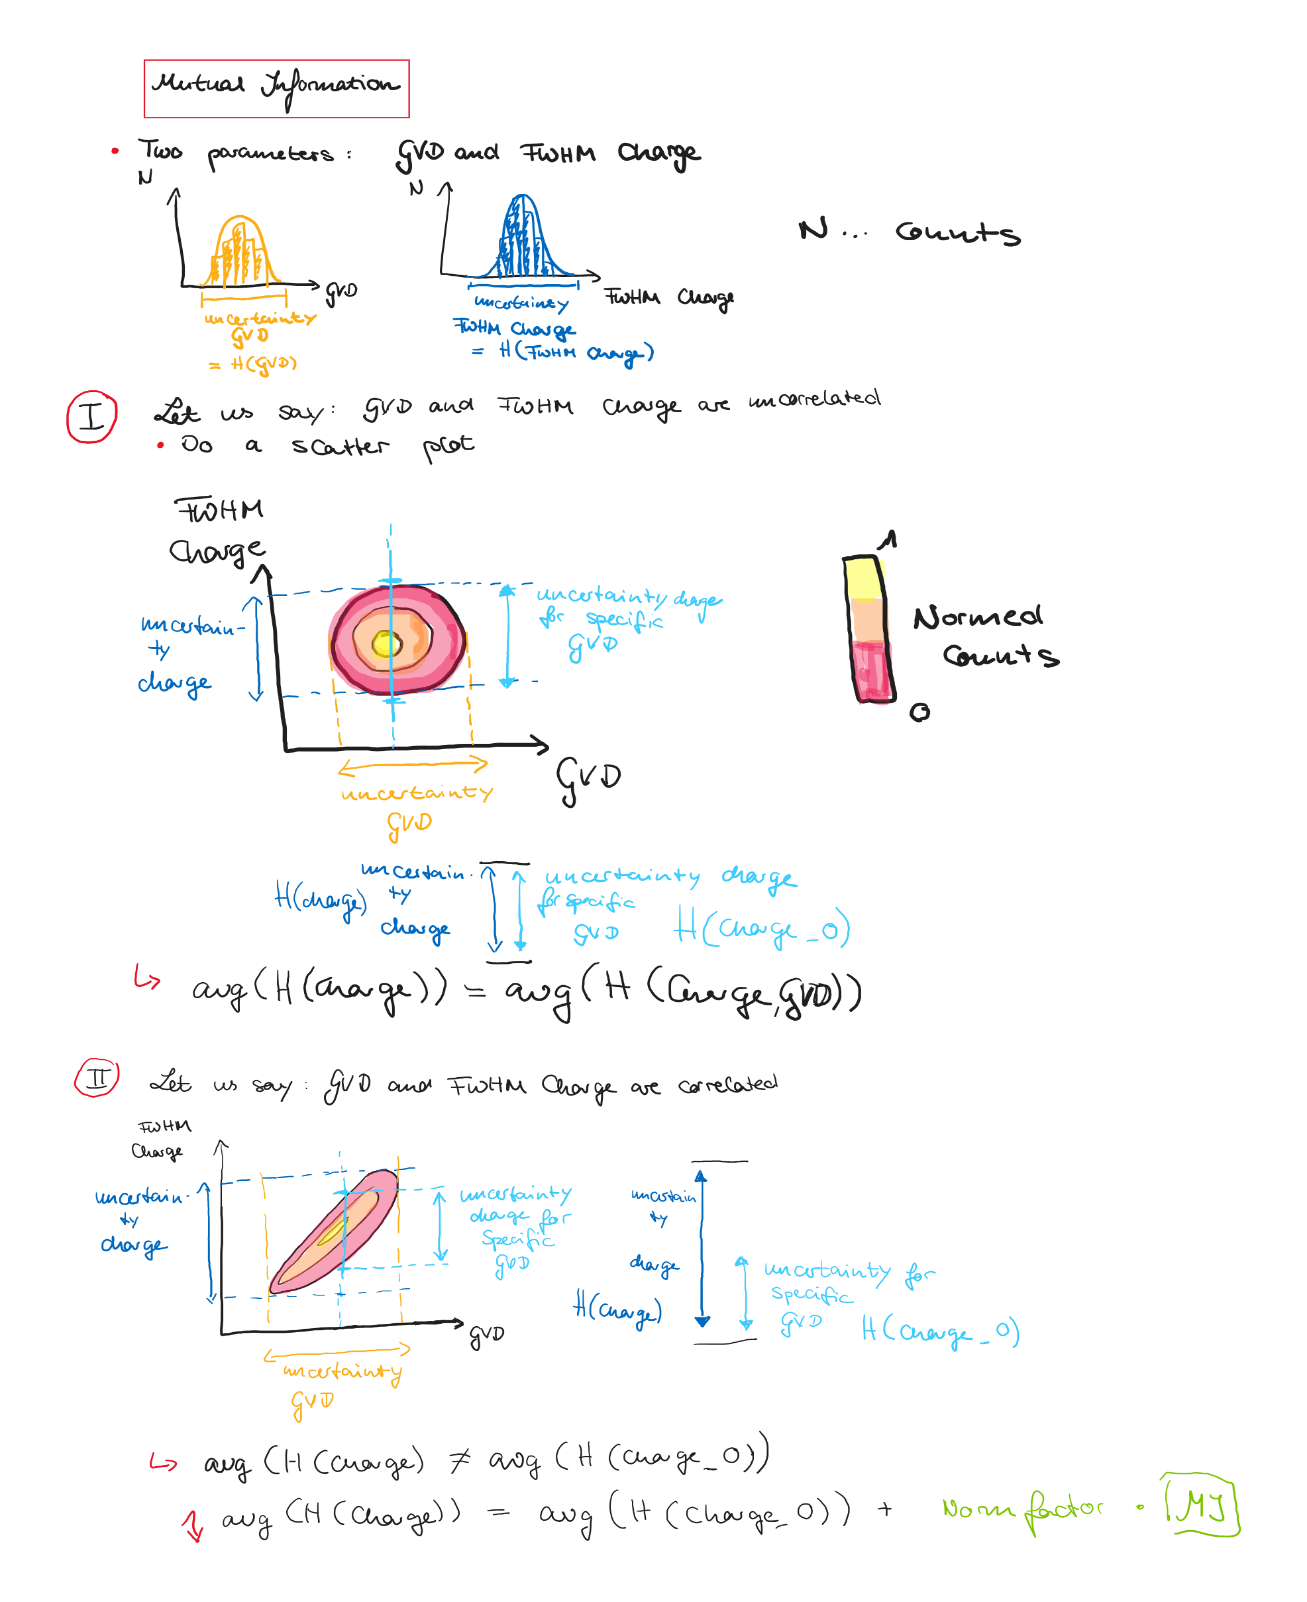 Mutual Information
• Two parameters: GVD and FWHM Charge
N
GVD
uncertainty
GVD
= H(GVD)
N
FWHM Charge
uncertainty
FWHM Charge
= H(FWHM Charge)
N... counts
I Let us say: GVD and FWHM Charge are uncorrelated
• Do a scatter plot
FWHM
Charge
uncertain-
ty
charge
uncertainty charge
for specific
GVD
GVD
uncertainty
GVD
1
Normed
Counts
0
uncertain-
ty
charge
H(charge)
uncertainty charge
for specific
GVD
H(charge_0)
↳ avg(H(charge)) = avg(H(Charge,GVD))
II Let us say: GVD and FWHM Charge are correlated
FWHM
Charge
uncertain-
ty
charge
uncertainty
charge for
specific
GVD
GVD
uncertainty
GVD
uncertain
ty
charge
H(charge)
uncertainty for
specific
GVD
H(charge_0)
↳ avg(H(charge) ≠ avg(H(charge_0))
avg(H(Charge)) = avg(H(Charge_0)) + Norm factor · MI